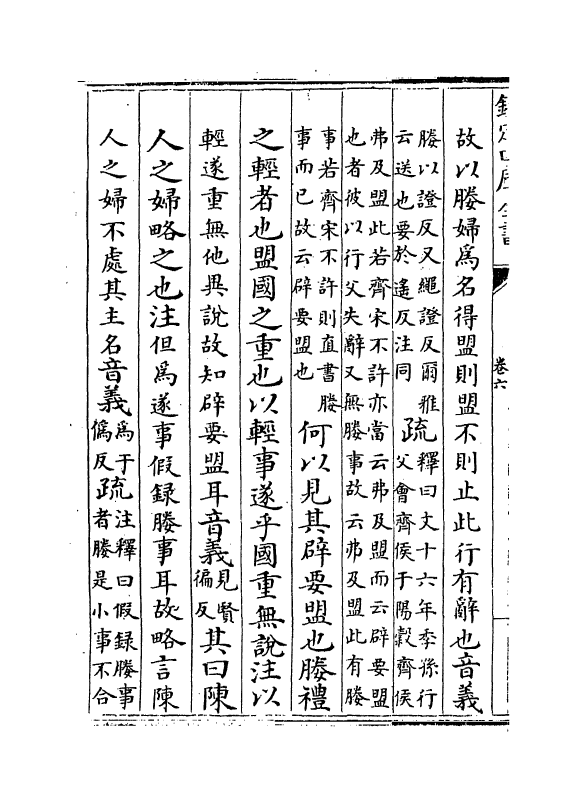 欽定四庫全書
卷六
故以媵婦為名得盟則盟不則止此行有辭也音義
媵以證反又繩證反爾雅
云送也要於遙反注同
疏
釋曰文十六年季孫行
父會齊侯于陽穀齊侯
弗及盟此若齊宋不許亦當云弗及盟而云辟要盟
也者彼以行父失辭又無媵事故云弗及盟此有媵
事若齊宋不許則直書媵
事而已故云辟要盟也
何以見其辟要盟也媵禮
之輕者也盟國之重也以輕事遂乎國重無說注以
輕遂重無他異說故知辟要盟耳音義
見賢
徧反
其曰陳
人之婦略之也注但為遂事假録媵事耳故略言陳
人之婦不處其主名音義
為于
偽反
疏
注釋曰假録媵事
者媵是小事不合